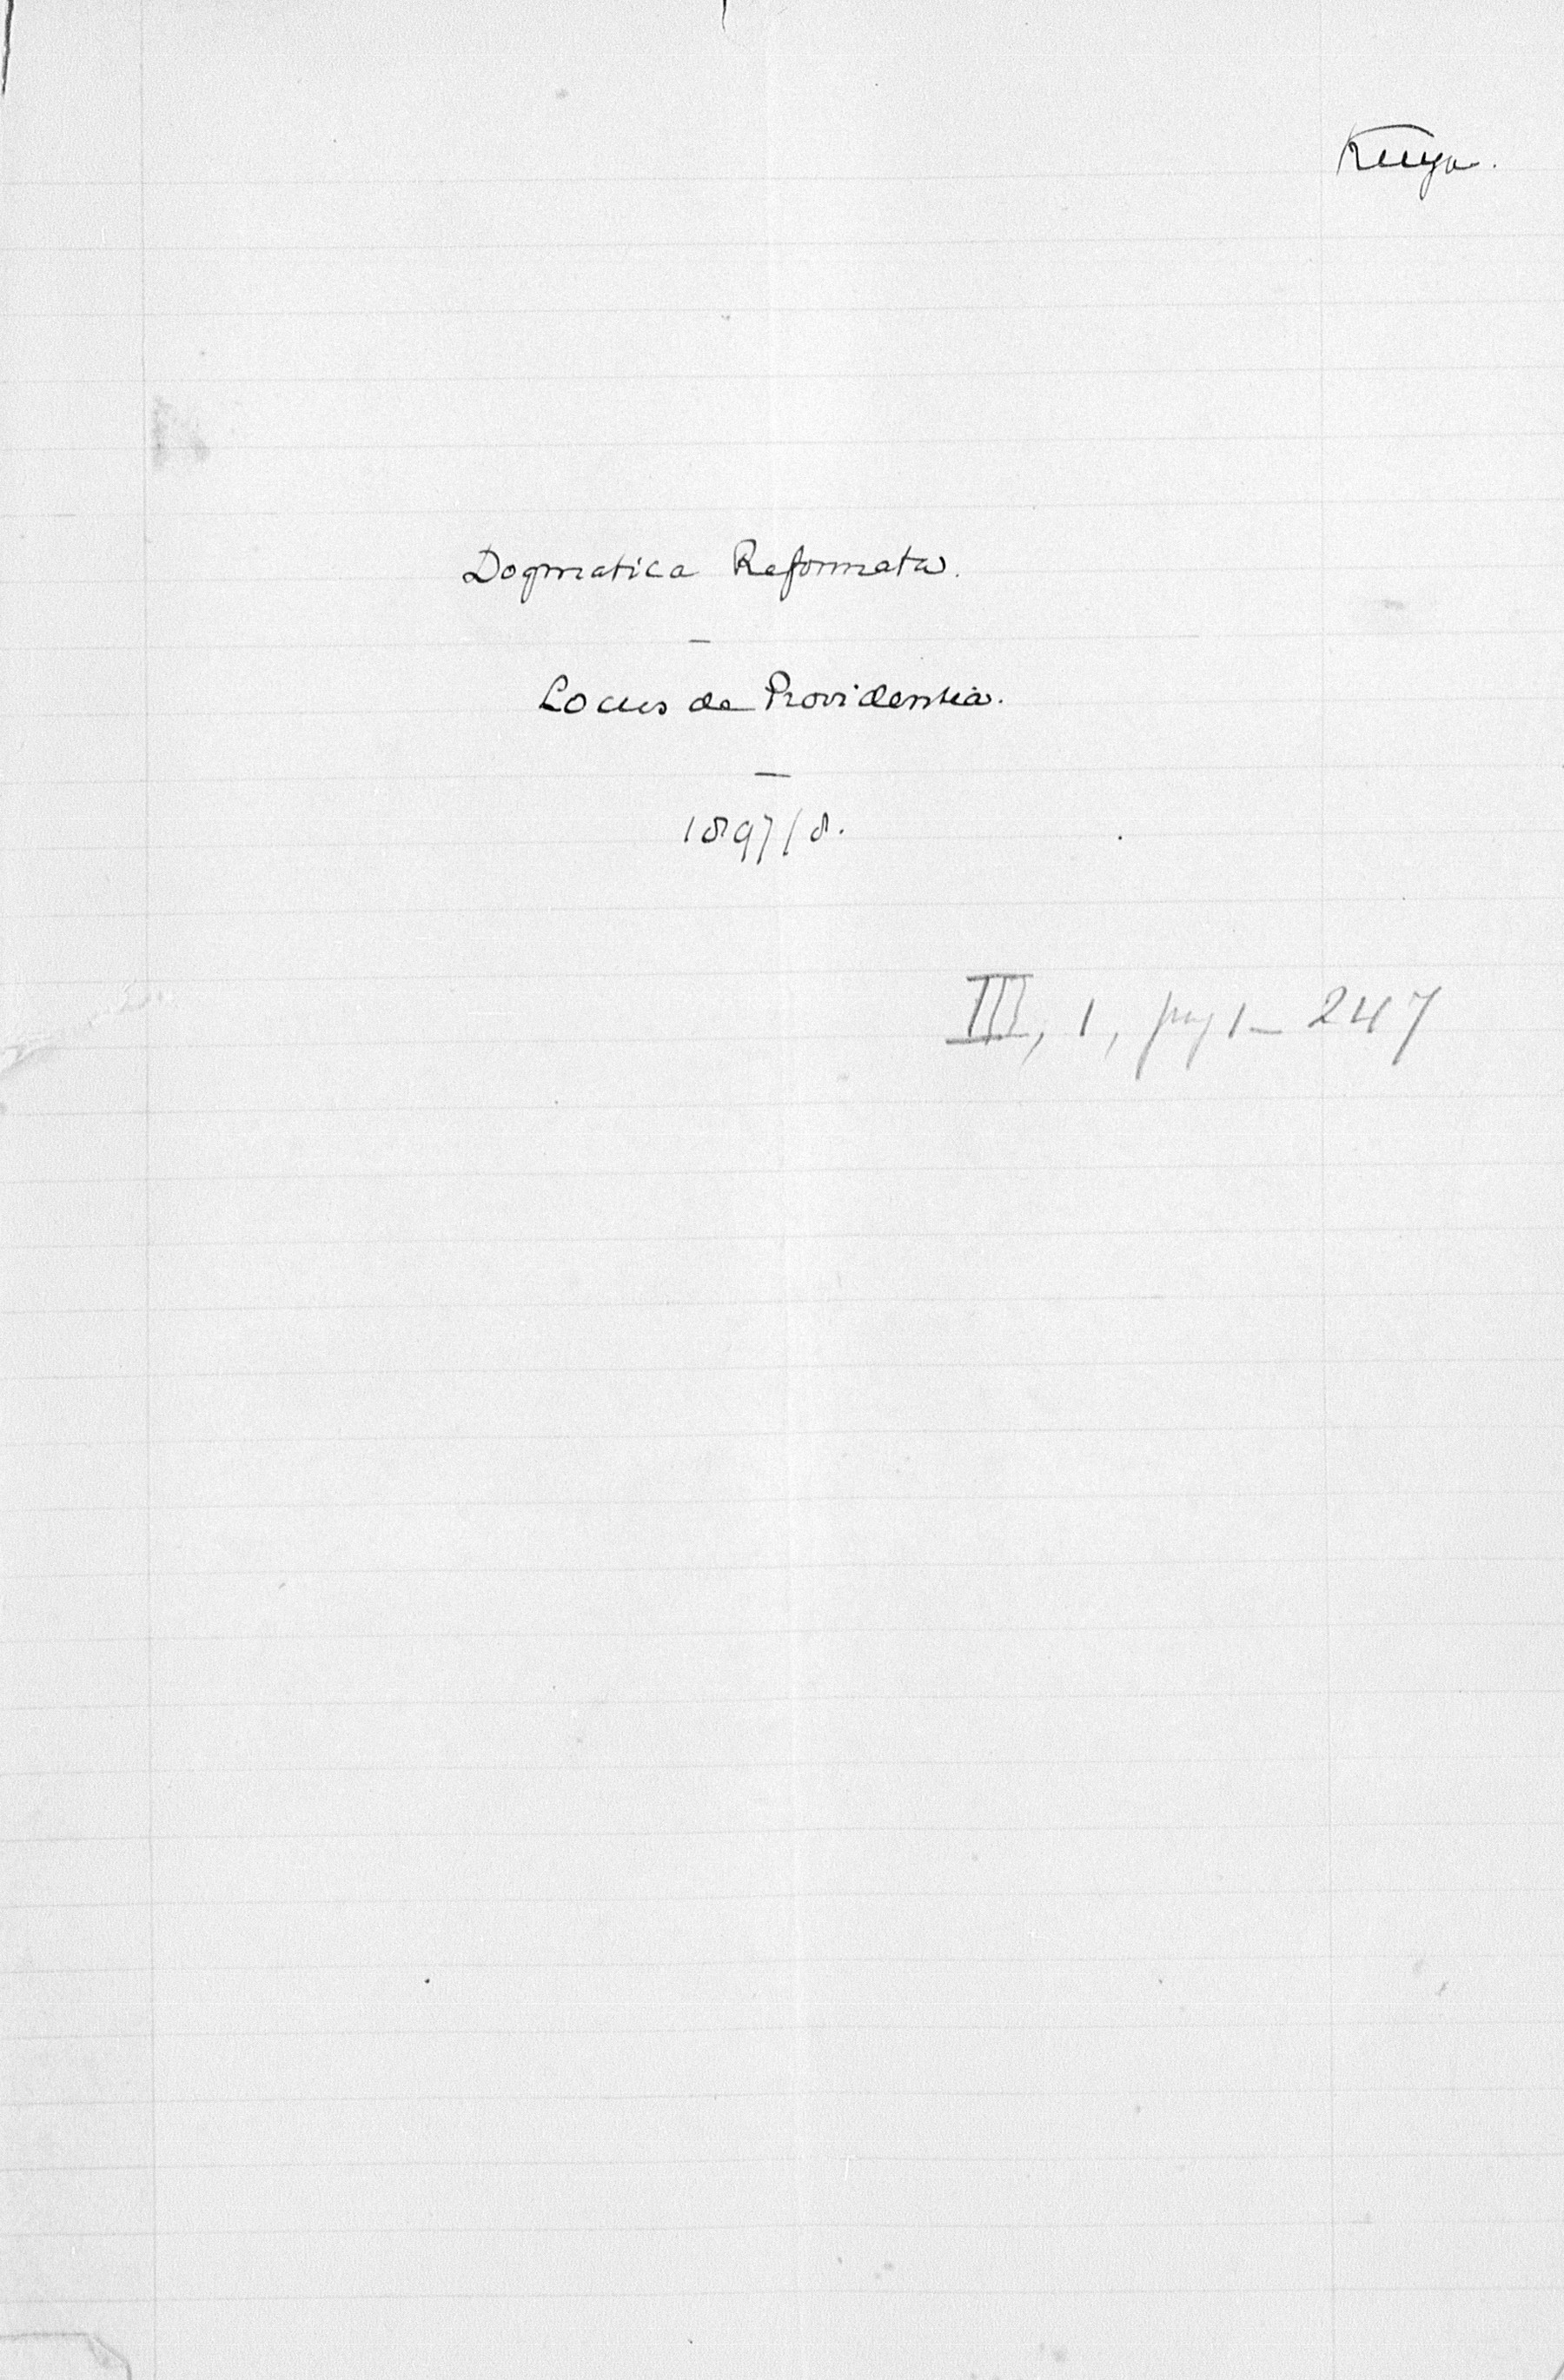 Kuyp.
Dogmatica Reformata.
—
Locus de Providentia.
—
1897/8.
III, 1, pag 1–247